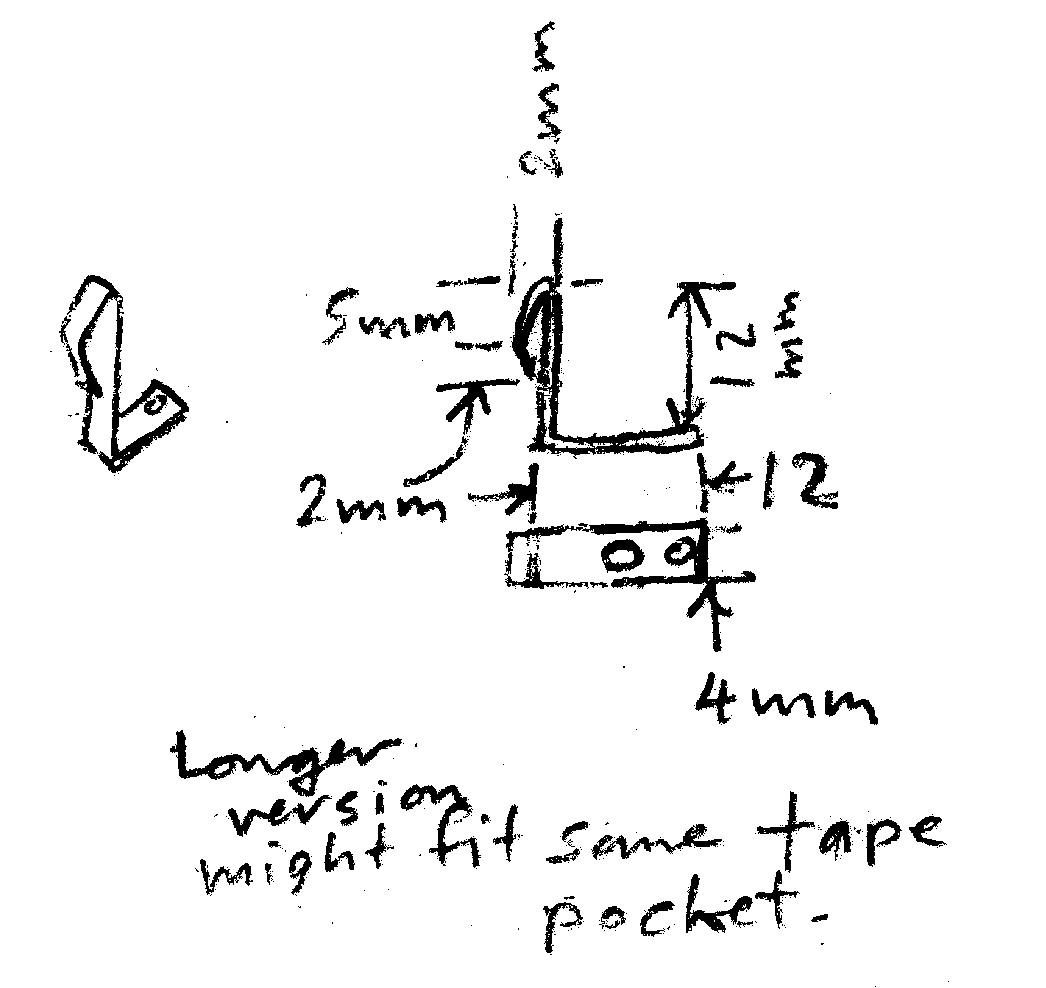 2mm
5mm
12
mm
2mm
12
4mm
Longer
version
might fit same tape
pocket.